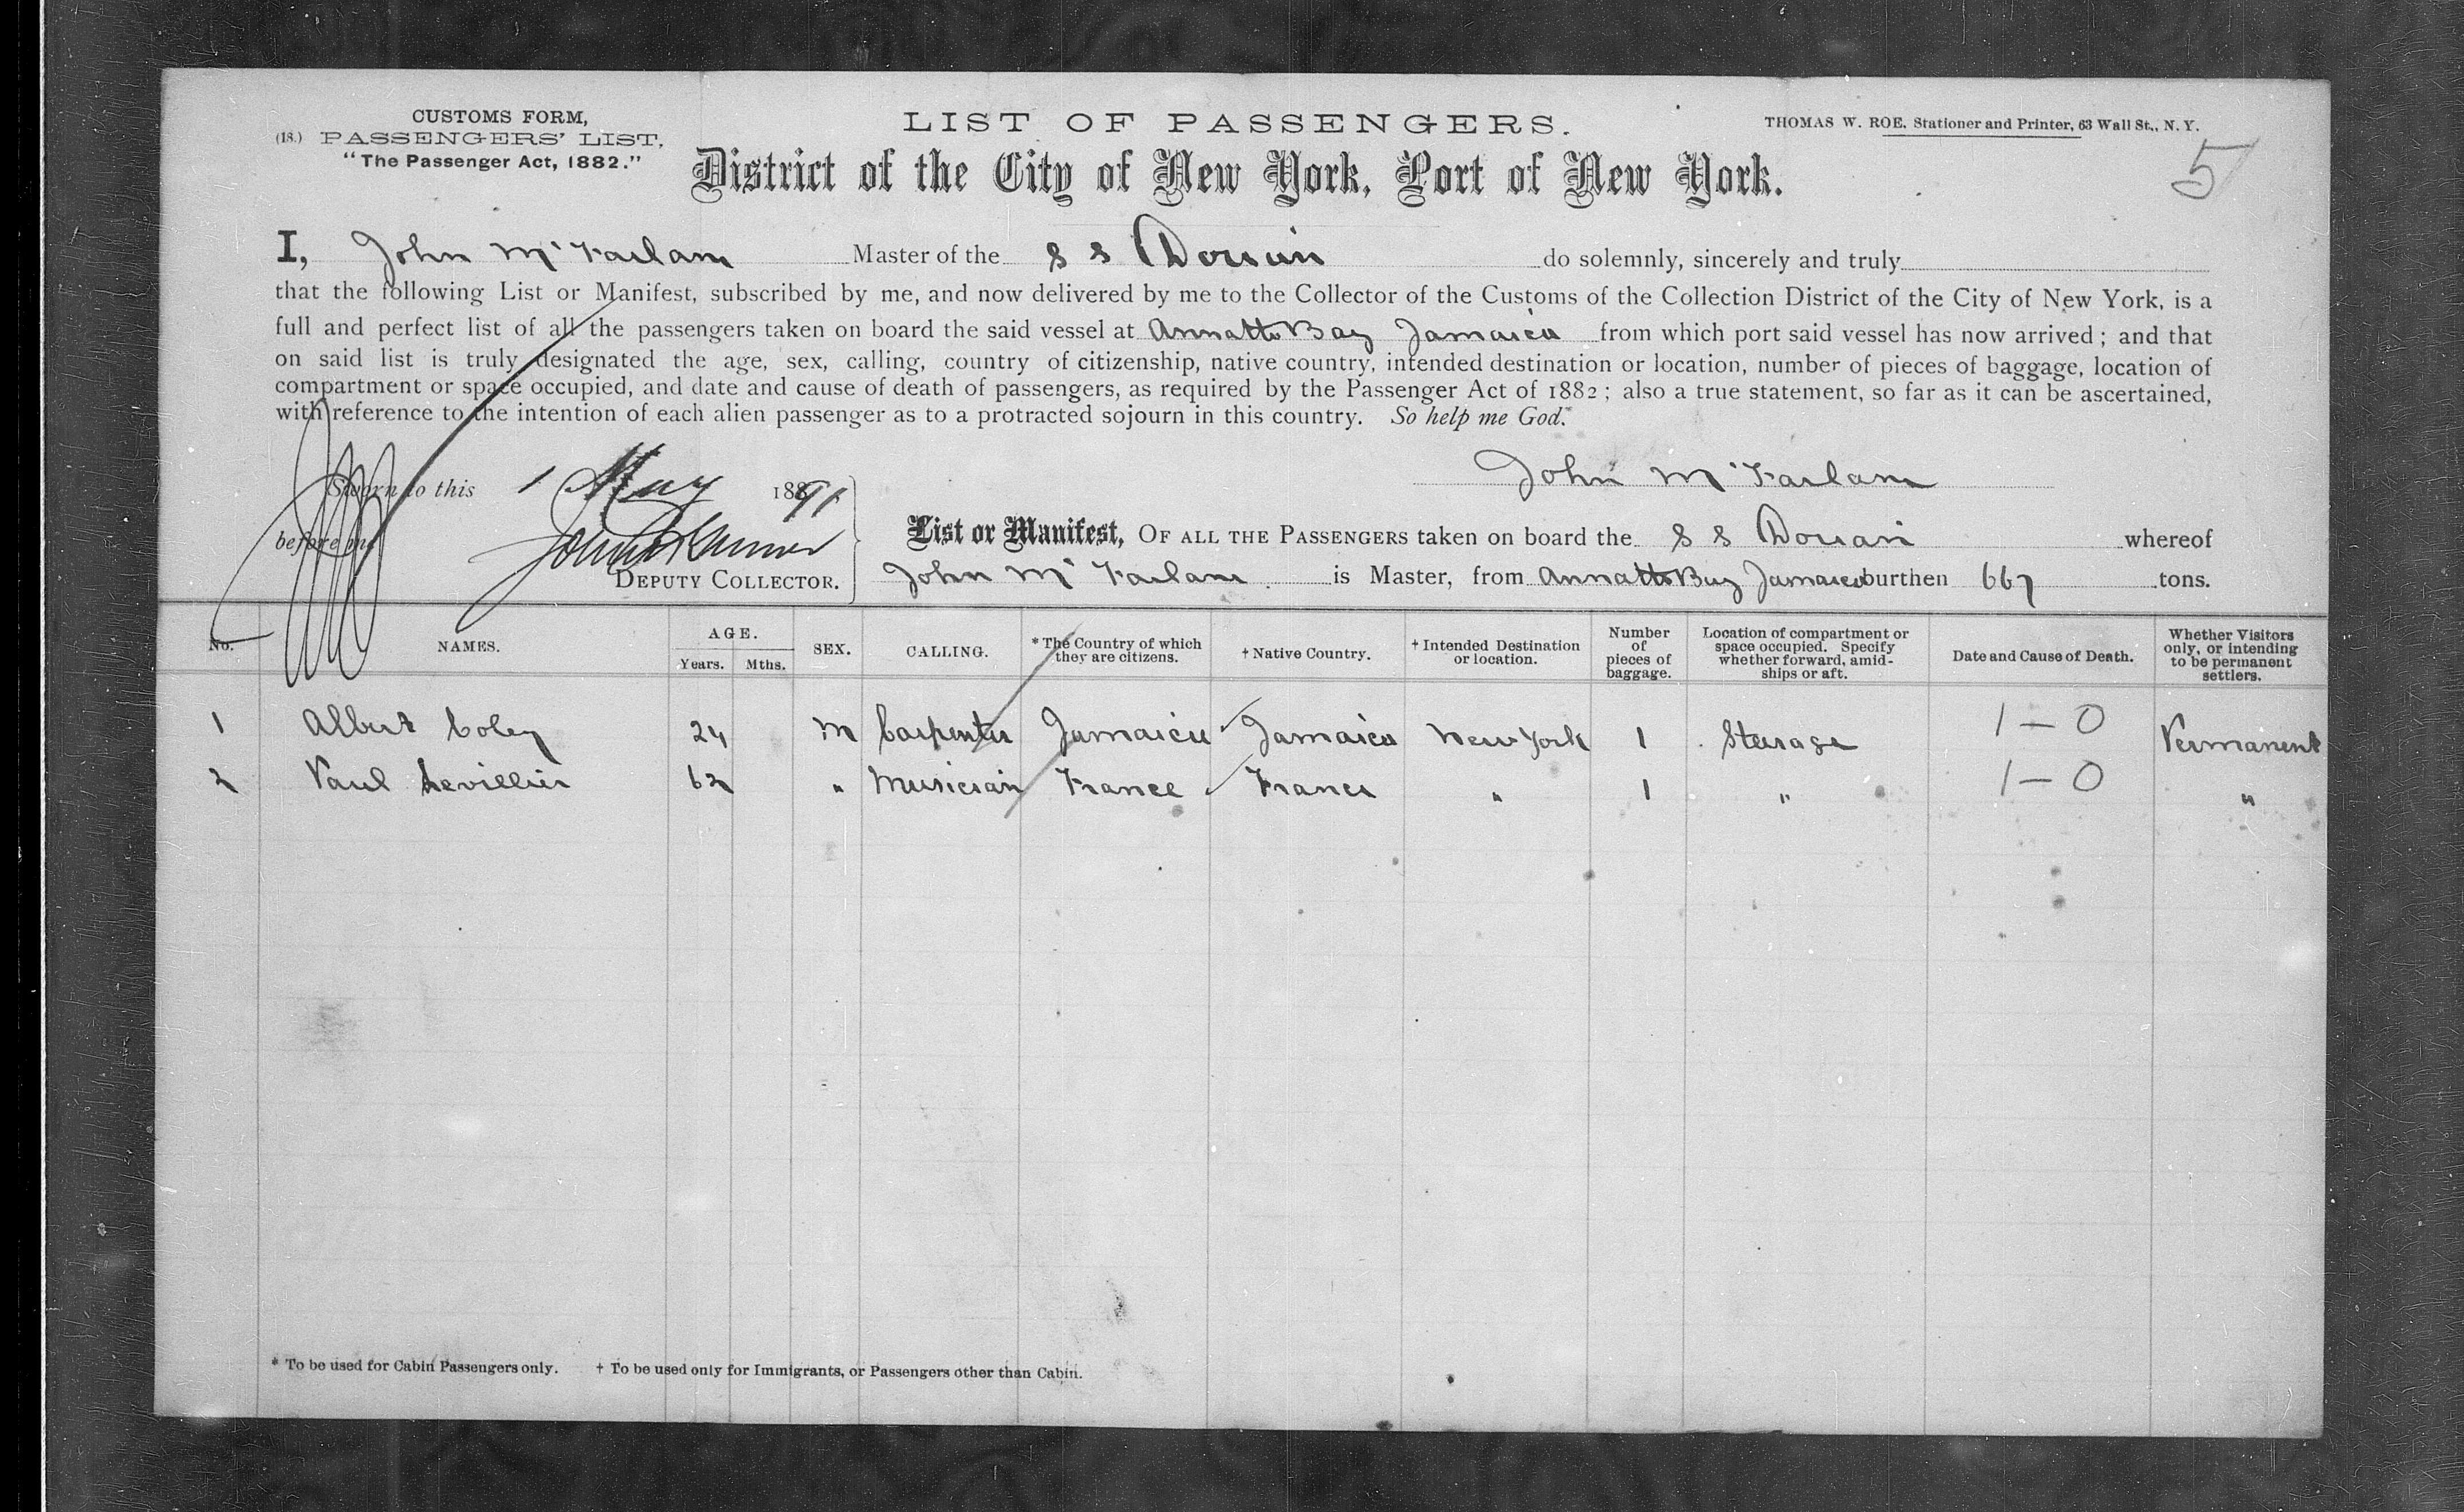 CUSTOMS FORM,
(18.) PASSENGERS' LIST,
"The Passenger Act, 1882."
LIST OF PASSENGERS.
THOMAS W. ROE, Stationer and Printer, 63 Wall St., N. Y.
District of the City of New York, Port of New York.
5
I, John McFarlam Master of the S S Dorian do solemnly, sincerely and truly
that the following List or Manifest, subscribed by me, and now delivered by me to the Collector of the Customs of the Collection District of the City of New York, is a
full and perfect list of all the passengers taken on board the said vessel at Annatto Bay Jamaica from which port said vessel has now arrived; and that
on said list is truly designated the age, sex, calling, country of citizenship, native country, intended destination or location, number of pieces of baggage, location of
compartment or space occupied, and date and cause of death of passengers, as required by the Passenger Act of 1882; also a true statement, so far as it can be ascertained,
with reference to the intention of each alien passenger as to a protracted sojourn in this country. So help me God.
John McFarlam
Sworn to this 1 May 1891
before me
DEPUTY COLLECTOR.
List or Manifest, OF ALL THE PASSENGERS taken on board the S S Dorian whereof
John McFarlam is Master, from Annatto Bay Jamaica burthen 667 tons.
No. NAMES. AGE. Years. Mths. SEX. CALLING. * The Country of which they are citizens. † Native Country. † Intended Destination or location. Number of pieces of baggage. Location of compartment or space occupied. Specify whether forward, amidships or aft. Date and Cause of Death. Whether Visitors only, or intending to be permanent settlers.
1 Albert Coley 24 M Carpenter Jamaica Jamaica New York 1 Steerage 1 — 0 Permanent
2 Paul Levillier 62 " Musician France France " 1 " 1 — 0 "
* To be used for Cabin Passengers only. † To be used only for Immigrants, or Passengers other than Cabin.